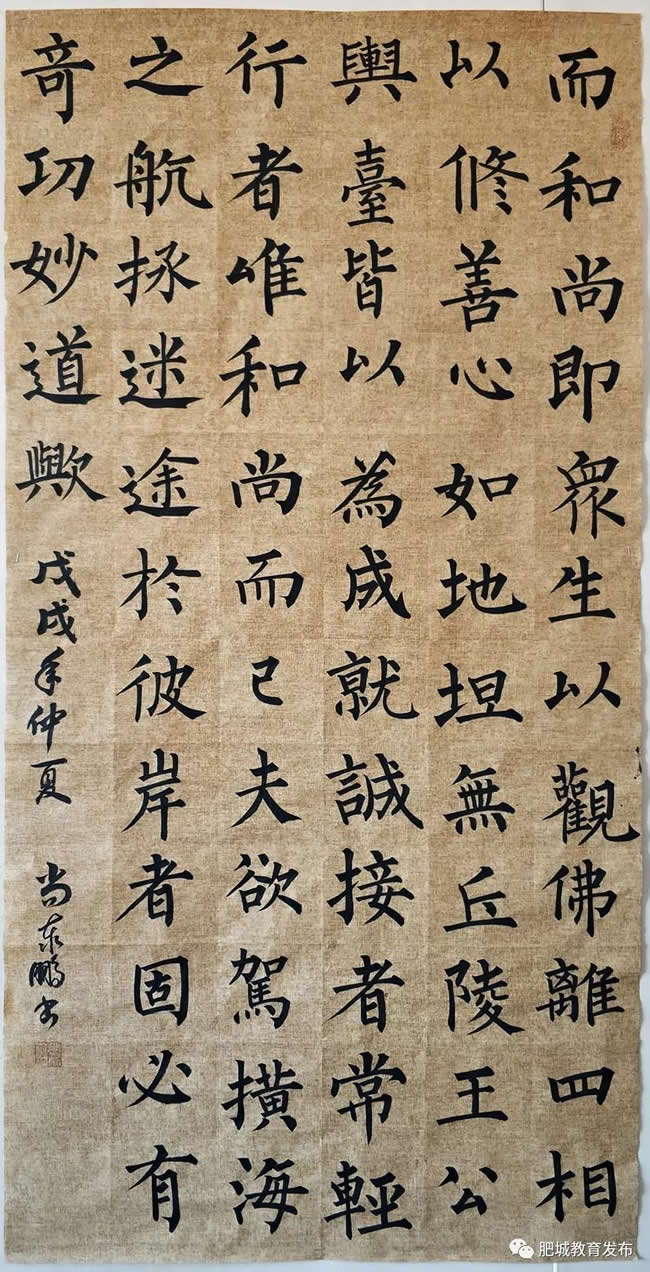 而和尚即眾生以觀佛離四相
以修善心如地坦無丘陵王公
輿臺皆以為成就誠接者常輕
行者唯和尚而已夫欲駕擴海
之航拯迷途於彼岸者固必有
奇功妙道歟 戊戌年仲夏 尚泰鵬書
肥城教育发布